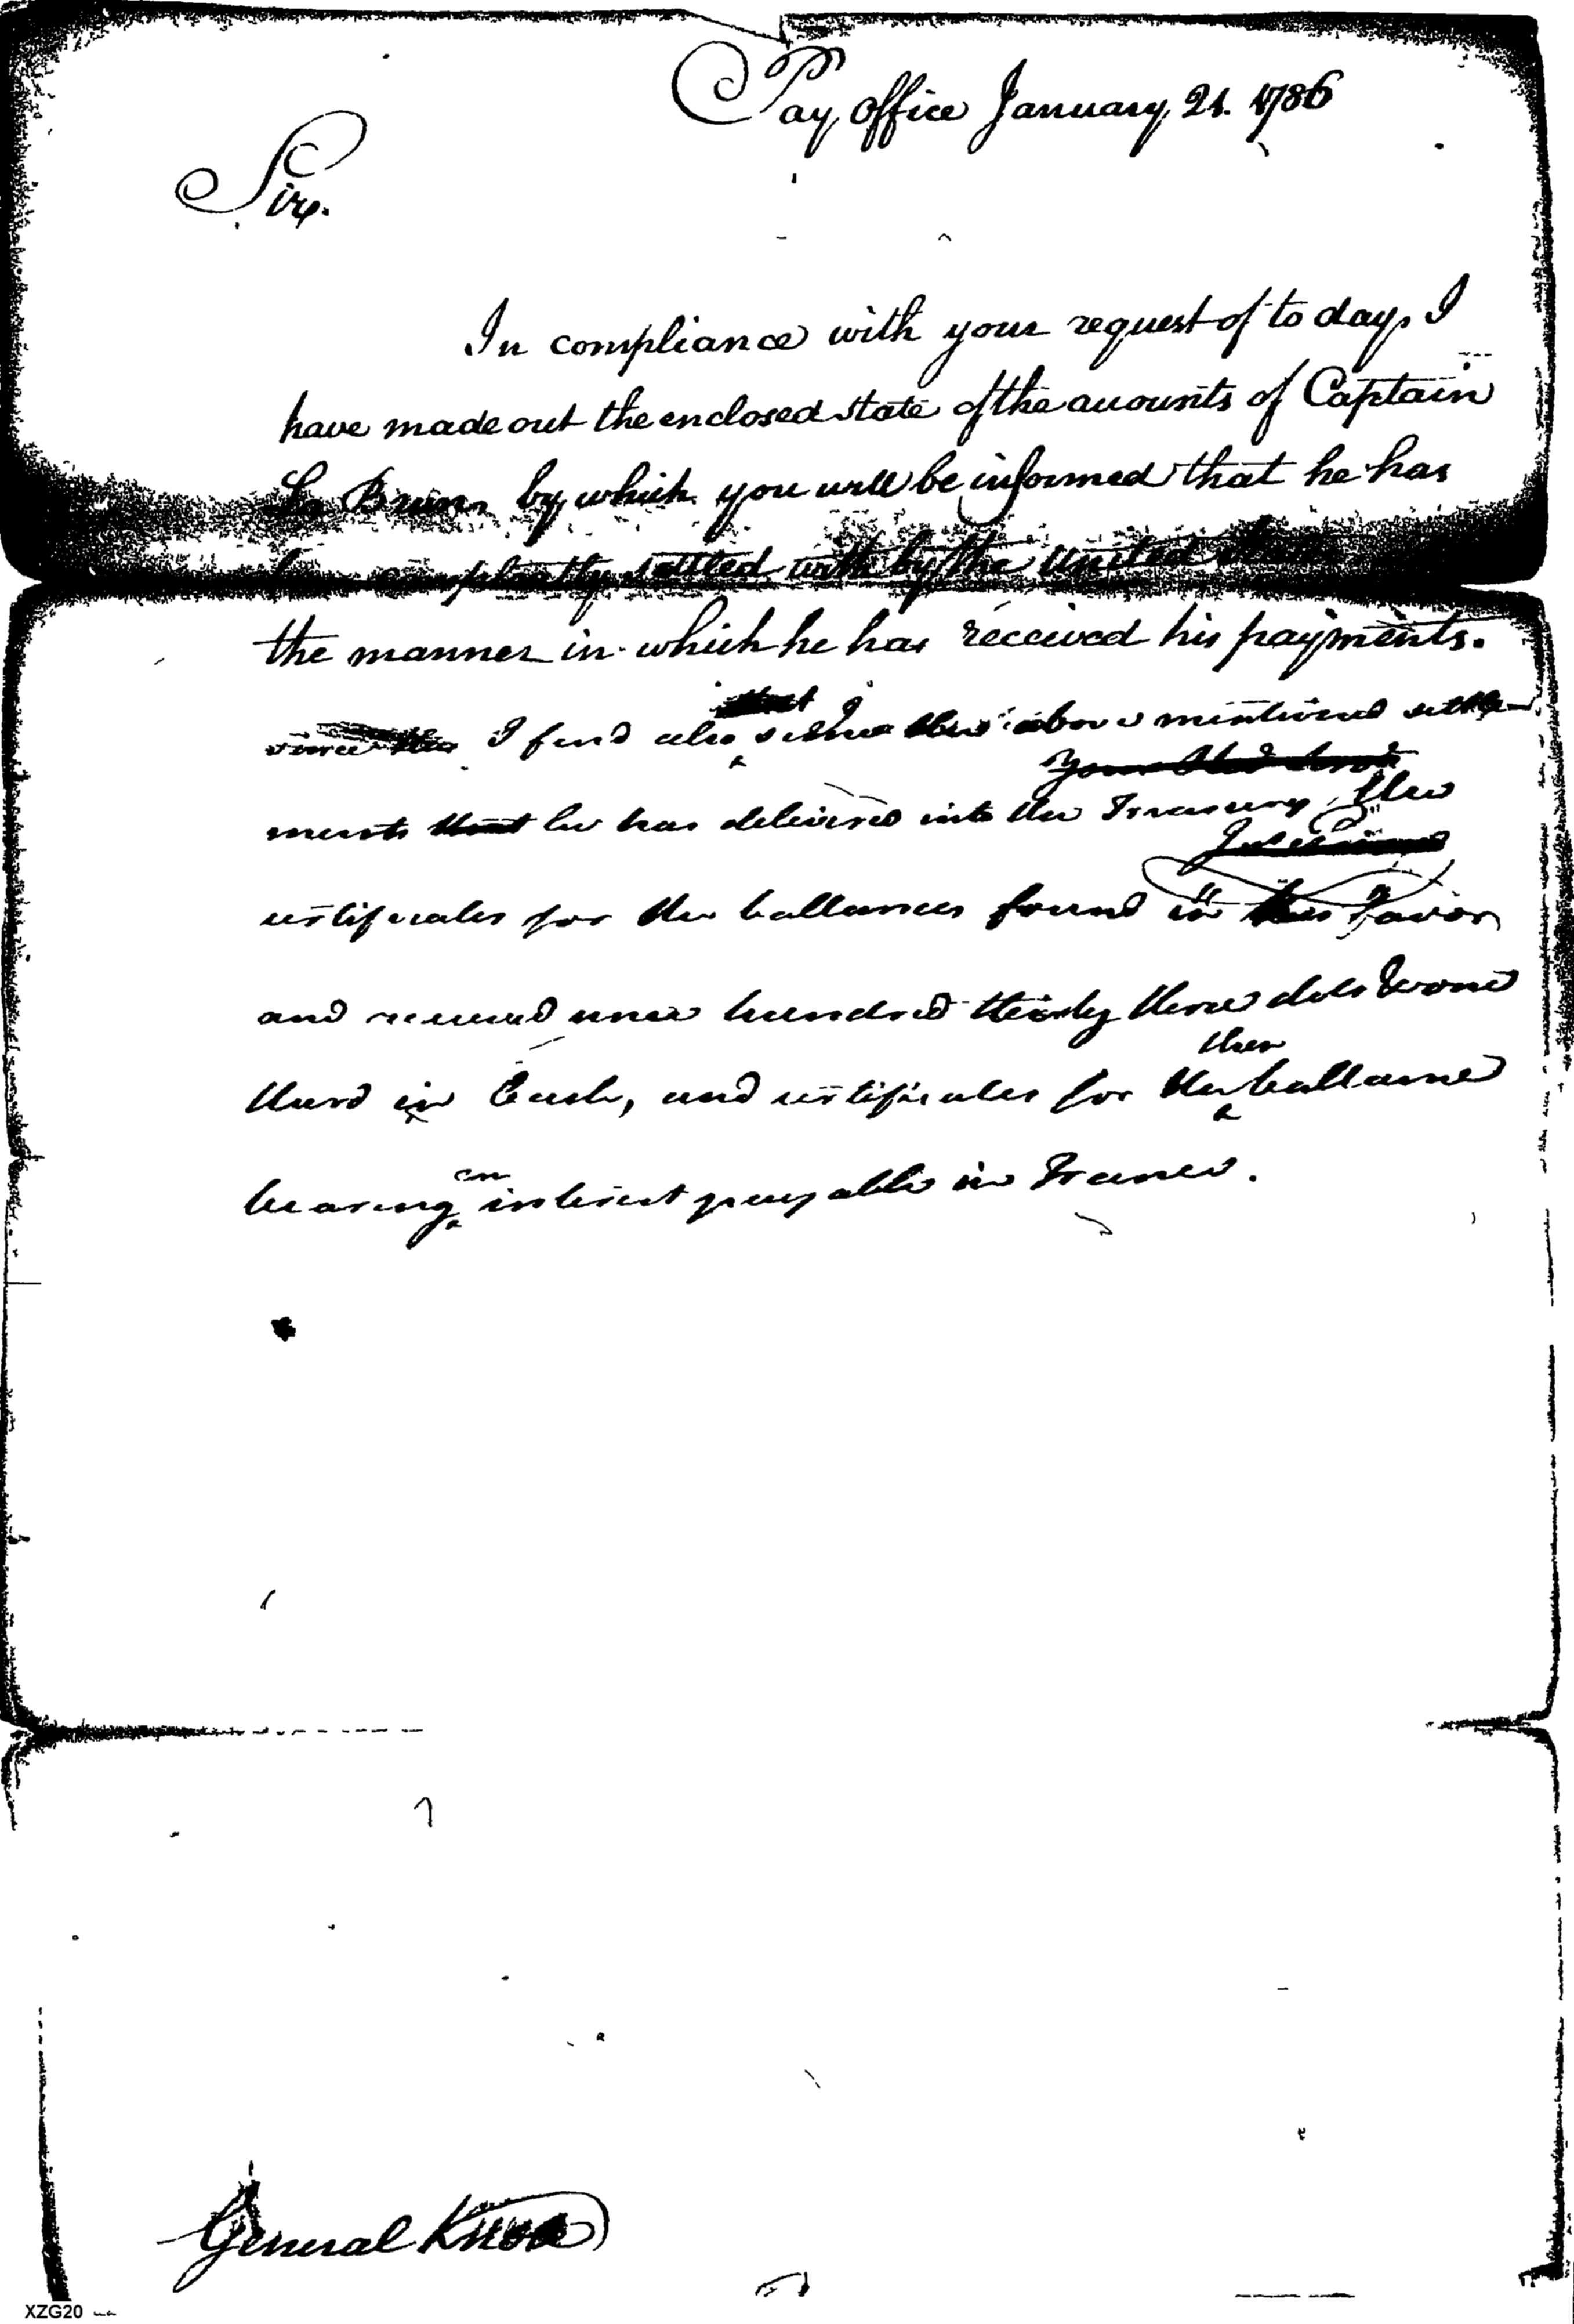 Pay Office January 21. 1786
Sir.
In compliance with your request of to day, I
have made out the enclosed state of the accounts of Captain
Le Brun, by which you will be informed that he has
been compleatly settled with by the United
the manner in which he has received his payments.
since the I find also that since the above mentioned settle-
Your Obed Serv
ments that he has delivered into the Treasury, the
certificates for the ballances found in his favor
and received one hundred thirty three dols & one
then
third in Cash, and certificates for the ballance
an
bearing interest payable in France.
General Knox
XZG20